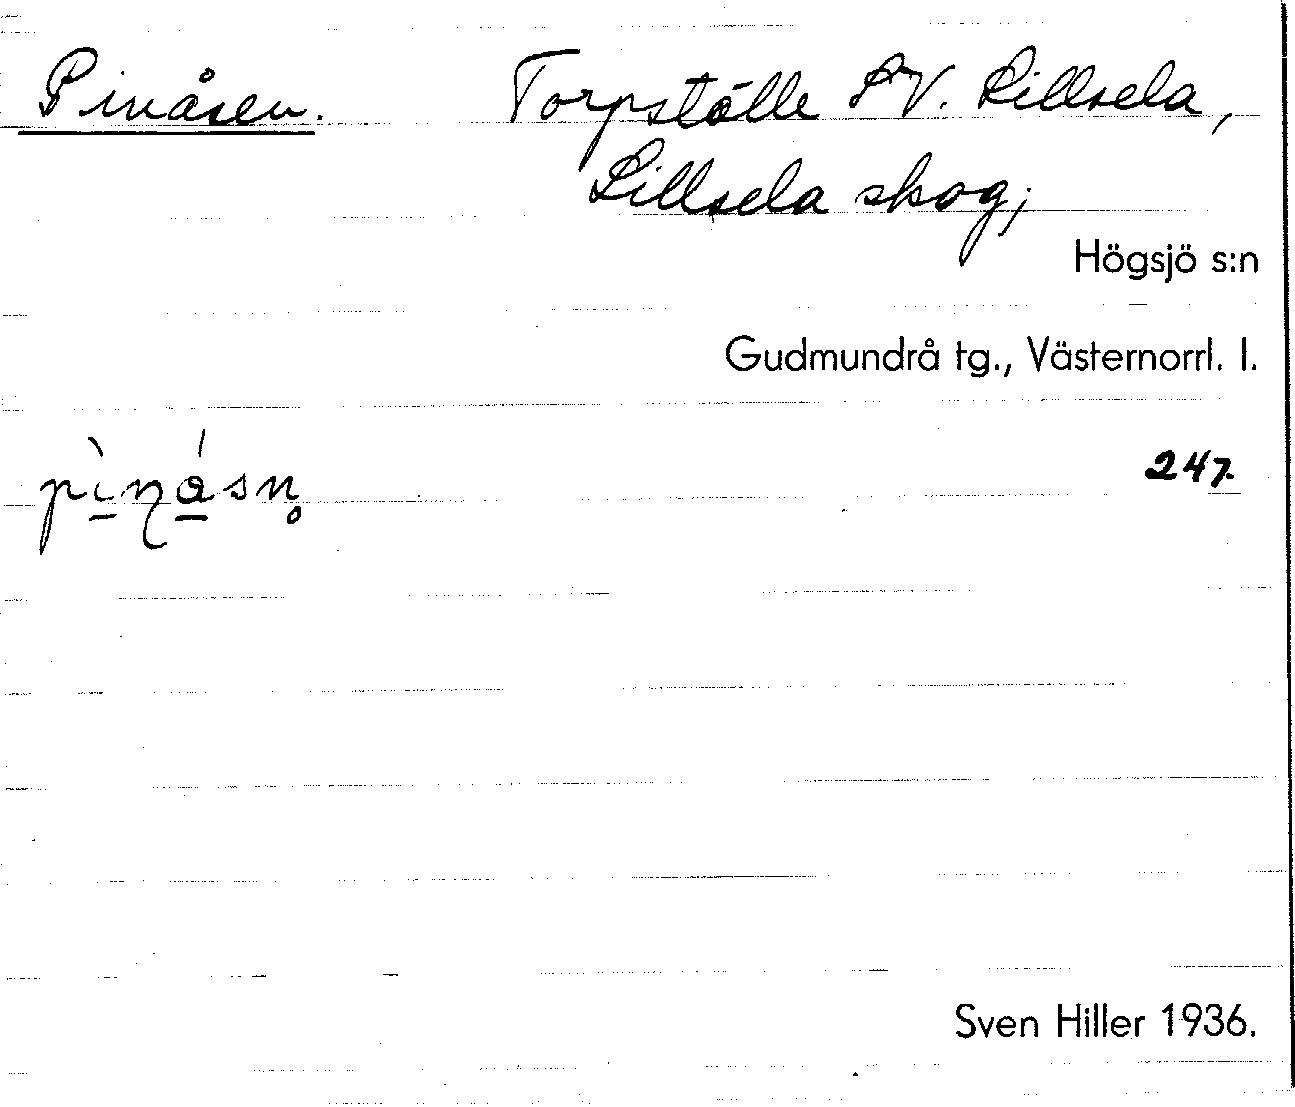 Pinåsen. Torpställe SV. Lillsela,
Lillsela skog;
Högsjö s:n
Gudmundrå tg., Västernorrl. l.
247.
Sven Hiller 1936.